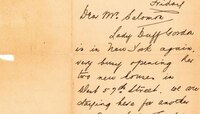 Friday
Dear Mr. Solomon
Lady Duff Gordon
is in New York again,
very busy opening her
two new houses in
West 57th Street. We are
staying here for another